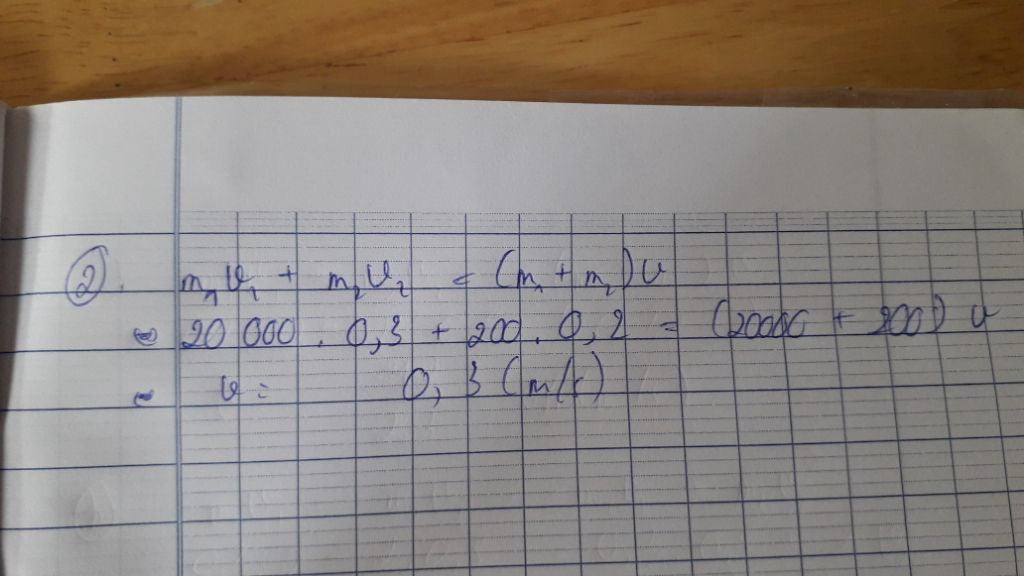 ②. m₁v₁ + m₂v₂ = (m₁ + m₂)v
⇔ 20 000 . 0,3 + 200 . 0,2 = (20000 + 200) v
⇔ v = 0,3 (m/s)